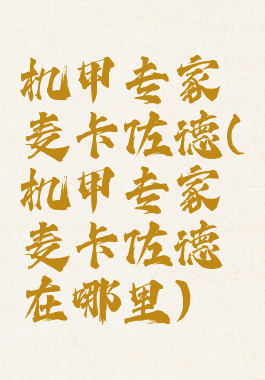 机甲专家
麦卡佐德(
机甲专家
麦卡佐德
在哪里)